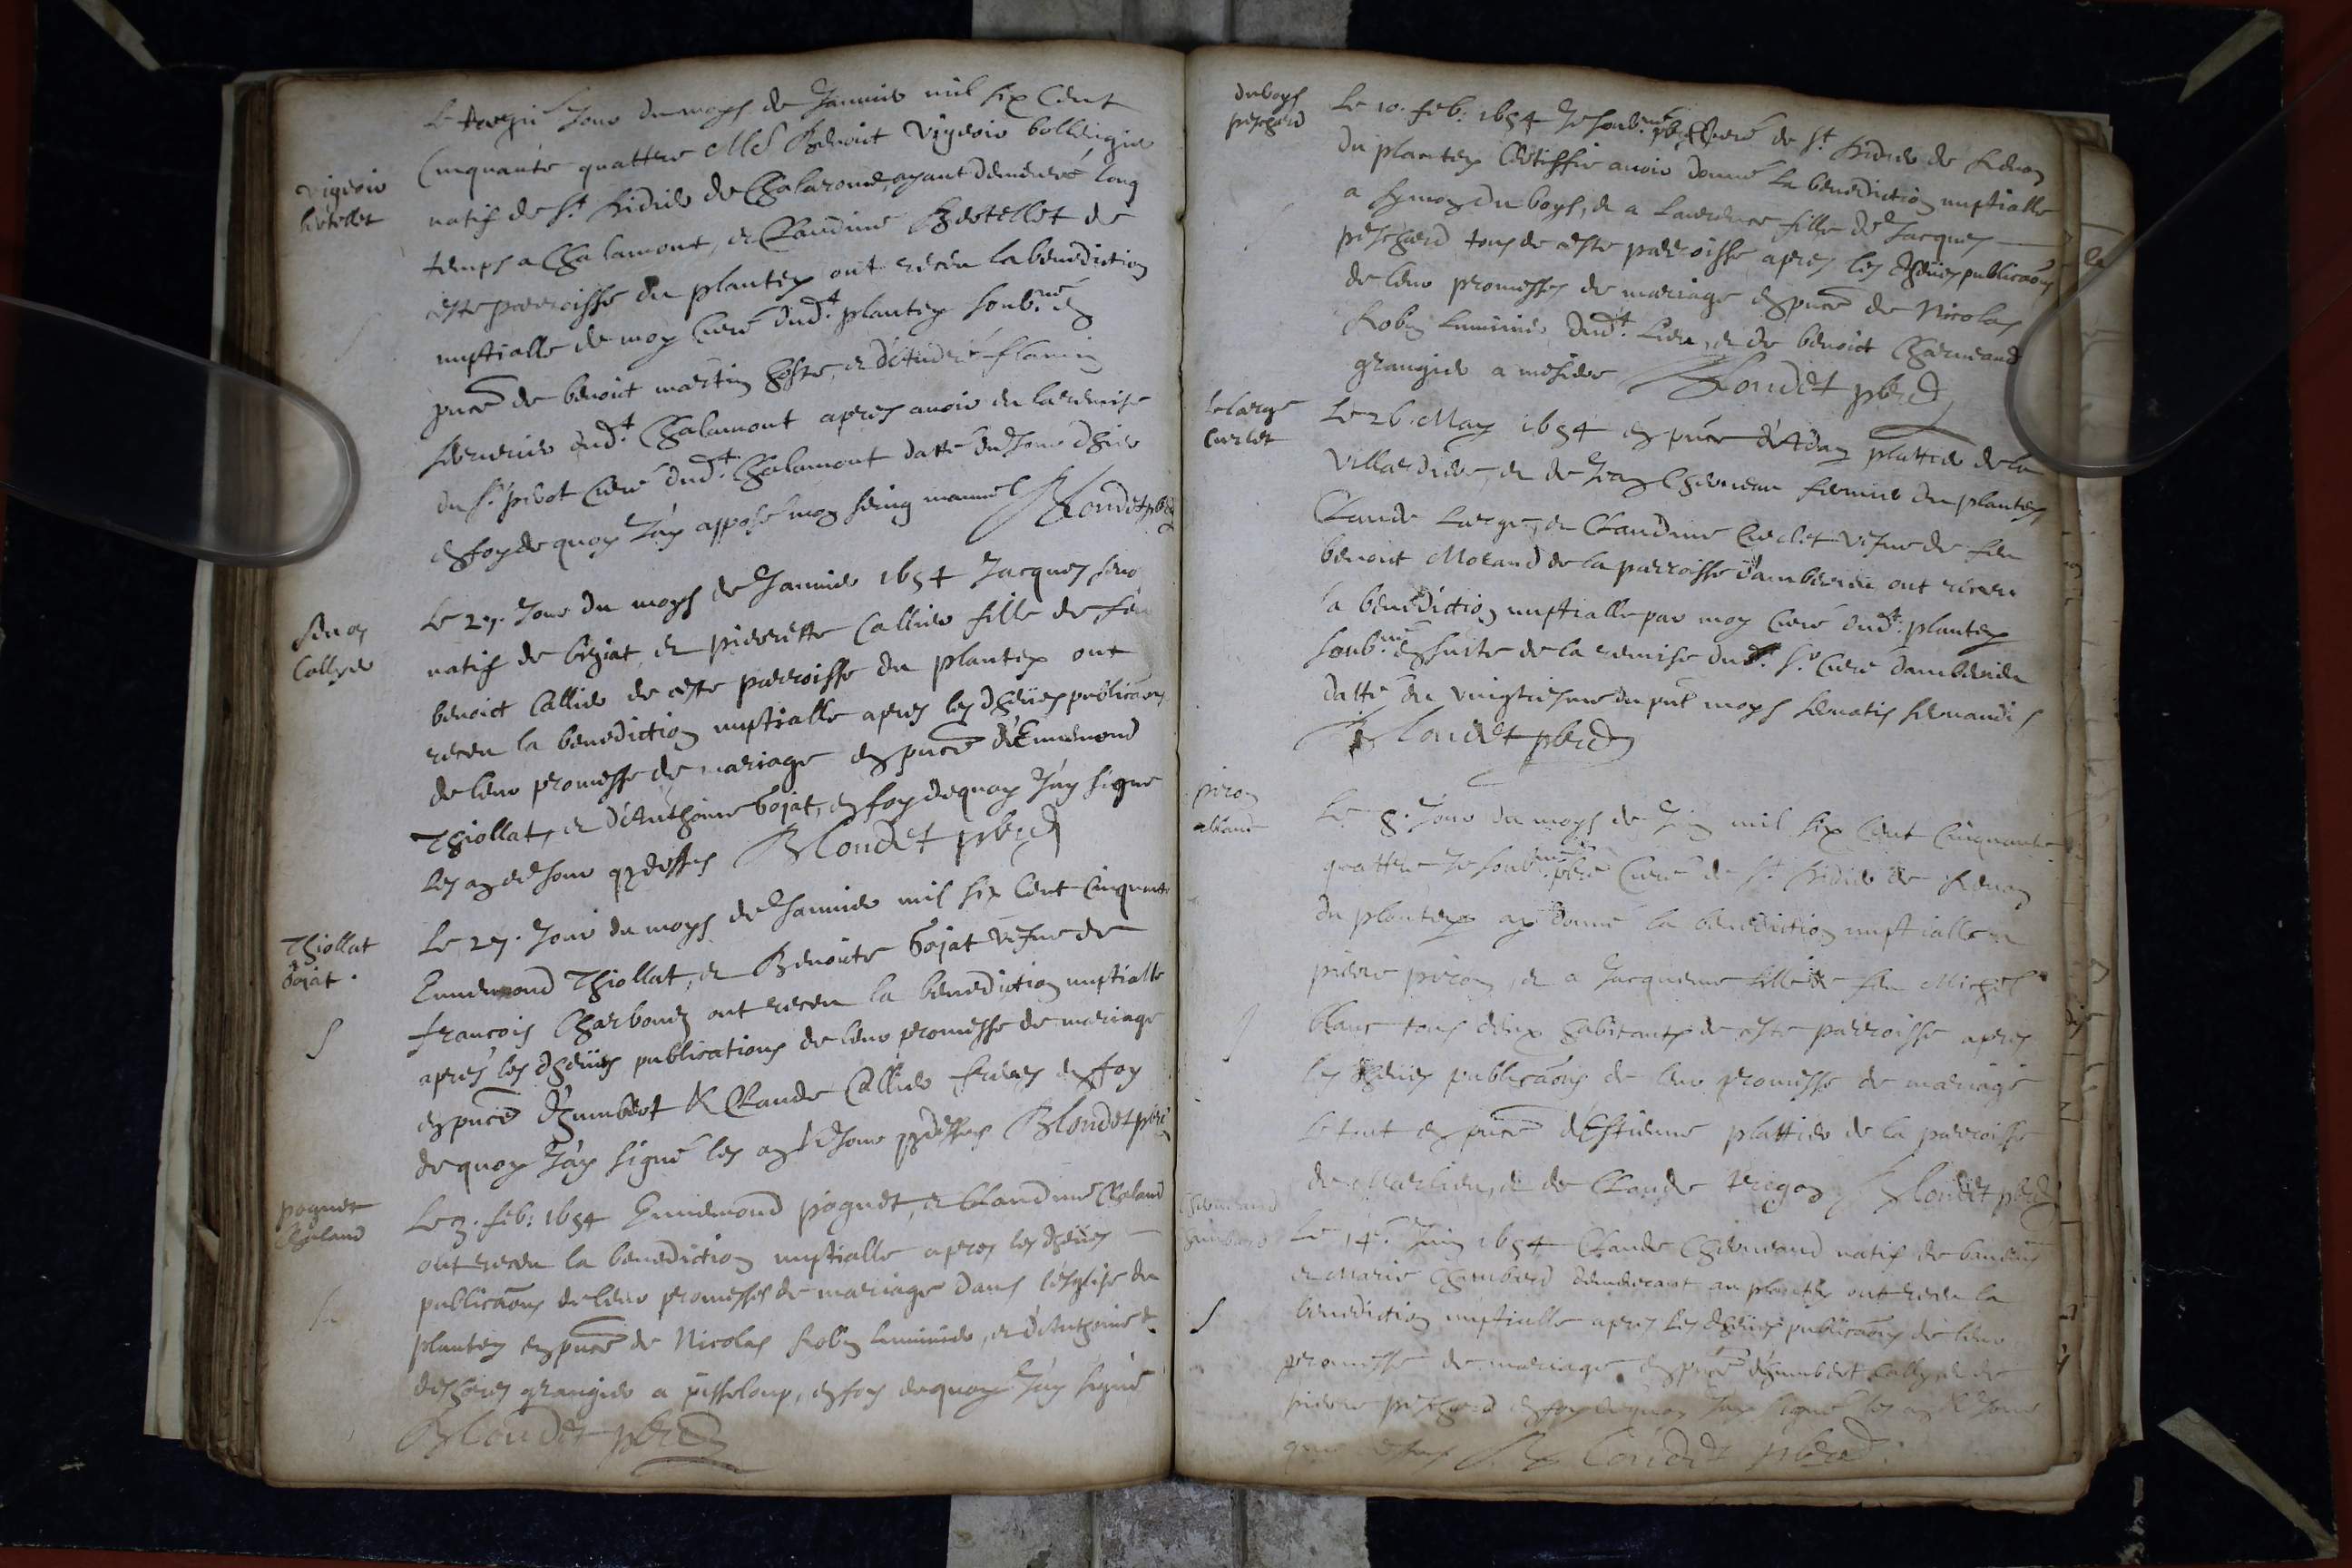 Le jour du moys de Janvier mil six Cent
Cinquante quattre Me Benoict Vigeoir bollengier
Vigeoir
Bertellet
natif de St Didier de Chalarone, ayant demeuré long
temps a Chalamont, et Claudine Bertellet de
ceste parroisse du plantey ont receu la benediction
nuptialle de moy Curé dudt plantey soubné en
pnce de benoict martin hoste, et d'André
dudt Chalamont apres avoir eu la remise
du Sr pivot Curé dudt Chalamont datté du jour d'hier
en foy de quoy J'ay apposé mon seing manuel Blondet pbre
Callyer
Le 27. Jour du moys de Janvier 1654 Jacques
natif de et pierrette Callier fille de feu
benoict Callier de ceste parroisse du plantey ont
receu la benediction nuptialle apres les dheues publicaons
de leur promesse de mariage en pnce d'Ennemond
Thiollat, et d'Anthoine bojat, en foy de quoy J'ay signé
les an et Jour q dessus Blondet pbre
Thiollat
bojat.
Le 27. Jour du moys de Janvier mil six Cent Cinquante
Ennemond Thiollat, et Benoicte bojat vefve de
francois Charbon ont receu la benediction nuptialle
apres les dheues publications de leur promesse de mariage
en pnce d'humbert & Claude Callier freres en foy
de quoy J'ay signé les an & Jour q dessus Blondet pbre
poguet
Chaland
Le 3. feb: 1654 Ennemond poguet, et Claudine Chaland
ont receu la benediction nuptialle apres les dheues
publicaons de leur promesses de mariage dans l'esglise du
plantey en pnce de Nicolas Robin luminier, et d'Anthoine
grangier a pisseloup, en foy de quoy J'ay signé
Blondet pbre
duboys
peschard
Le 10. feb: 1654 Je soubné pbre Curé de St Didier de Renon
du plantey Certiffie avoir donné la benediction nuptialle
a Symon du boys, et a Laurence fille de Jacques
peschard tous de ceste parroisse apres les dheues publicaons
de leur promesses de mariage en pnce de Nicolas
Robin luminier dudt lieu, et de benoict
grangier a Blondet pbre
Curlet
Le 26. May 1654 en pnce d'Adam plattier de la
Villardiere, et de Jean fermier du plantey
Claude et Claudine Curlet vefve de feu
benoict Morand de la parroisse d'amberieu ont receu
la benediction nuptialle par moy Curé dudt plantey
soubné en suite de la remise dudt Sr Curé d'amberieu
datté du vingtiesme du pnt moys servatis servandis
Blondet pbre
piron
blanc
Le 8. Jour du moys de Juin mil six Cent Cinquante
quattre Je soubné pbre Curé de St Didier de Renon
du plantey ay donné la benediction nuptialle a
pierre piron, et a Jacqueme fille de feu Michel
blanc tous deux habitants de ceste parroisse apres
les dheues publicaons de leur promesse de mariage
Le tout en pnce d'Estienne plattier de la parroisse
de Marlieu, et de Claude Blondet pbre
Le 14. Juin 1654 Claude natif de
et Marie demeurant au plantey ont receu la
benediction nuptialle apres les dheues publicaons de leur
promesse de mariage en pnce d'humbert Cally, et de
pierre peschard en foy de quoy J'ay signé les an & Jour
que dessus Blondet pbre